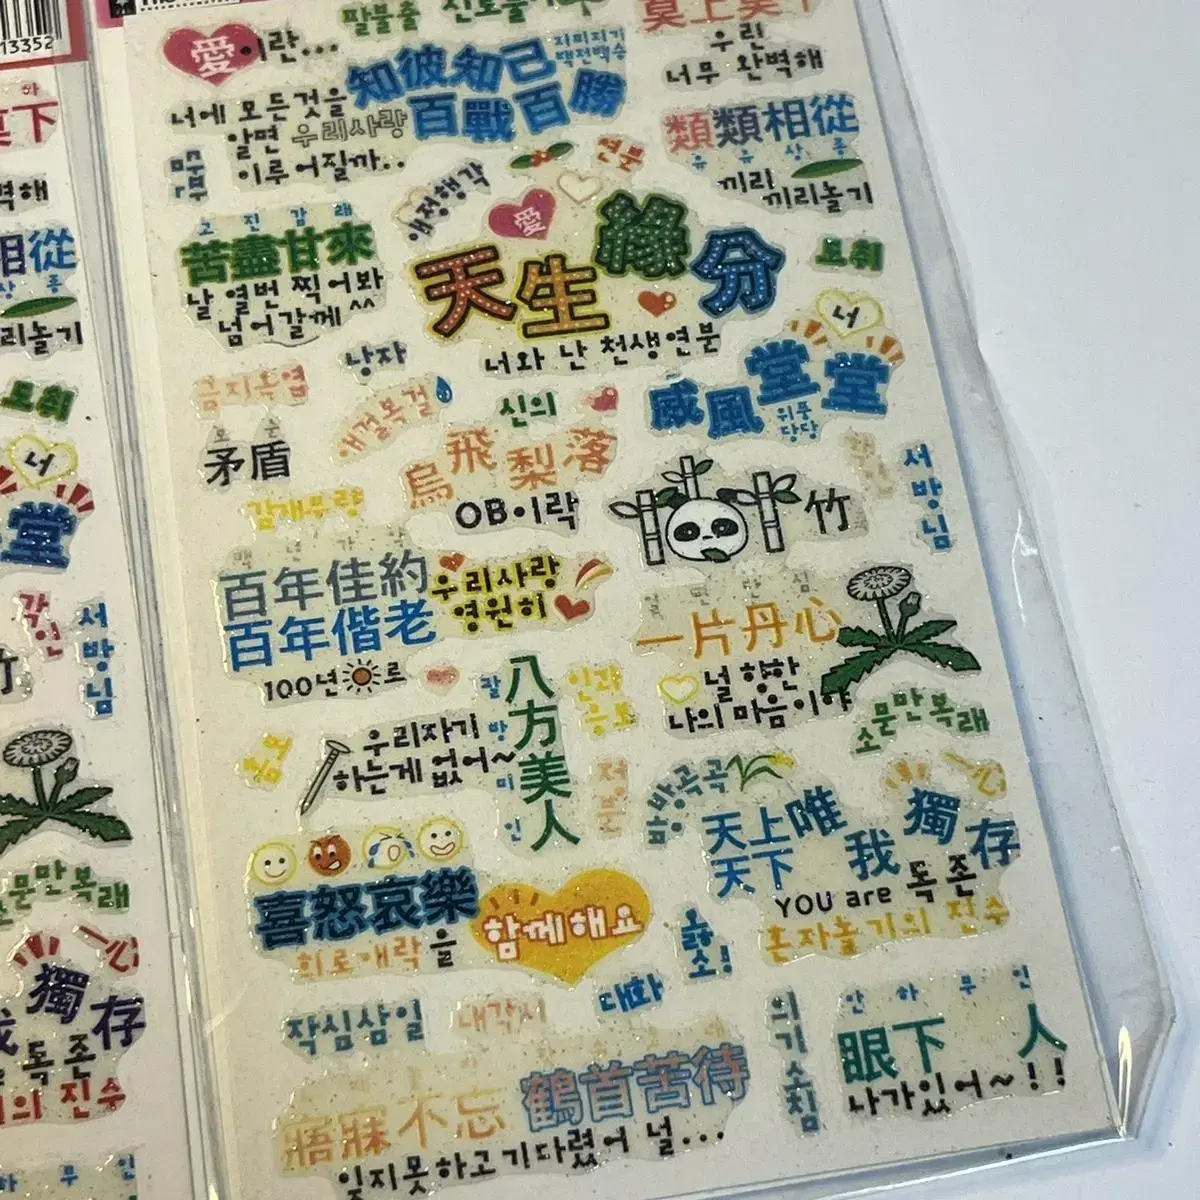 13352
팔불출
愛
이란...
너에 모든것을
알면 우리사랑
이루어질까..
知彼知己
百戰百勝
지피지기
백전백승
莫上莫下
우린
너무 완벽해
類類相從
유유상종
끼리
끼리놀기
연분
애정행각
愛
고진감래
苦盡甘來
날 열번 찍어봐
넘어갈께^^
天生緣分
너와 난 천생연분
도취
너
威風堂堂
위풍
당당
낭자
금지옥엽
애걸복걸
신의
모순
矛盾
감개무량
烏飛梨落
OB이락
竹
서방님
백년가약
百年佳約
百年偕老
우리사랑
영원히
100년 로
일편단심
一片丹心
널 향한
나의 마음이야
소문만복래
팔방미인
八方美人
우리자기
하는게 없어~
흠모
인과
응보
방방곡곡
一心
天上
天下
唯我獨存
YOU are 독존
혼자놀기의 진수
喜怒哀樂
희로애락을
함께해요
호소!
작심삼일
내각시
대화
의기소침
안하무인
眼下 人
나가있어~!!
寤寐不忘
鶴首苦待
잊지못하고기다렸어 널...
下
벽해
相從
상종
리놀기
도취
너
堂
각
서방님
소문만복래
一心
獨存
독존
의 진수
하무인